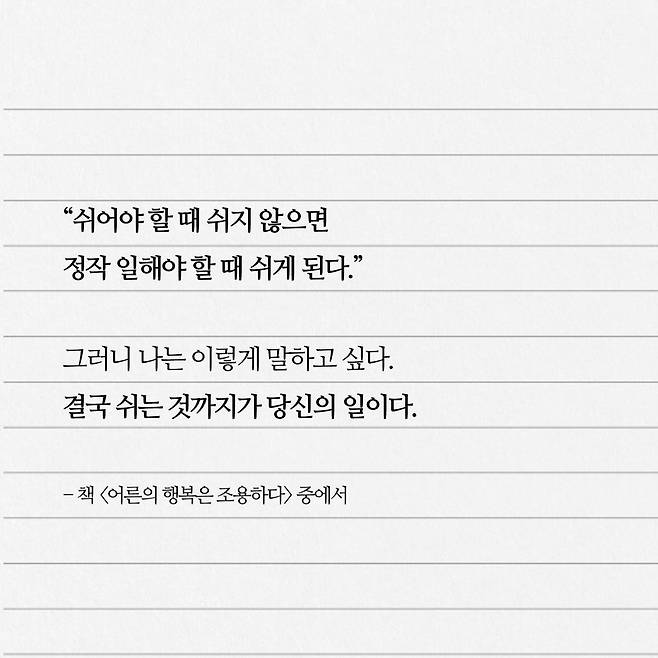 “쉬어야 할 때 쉬지 않으면
정작 일해야 할 때 쉬게 된다.”
그러니 나는 이렇게 말하고 싶다.
결국 쉬는 것까지가 당신의 일이다.
– 책 〈어른의 행복은 조용하다〉 중에서